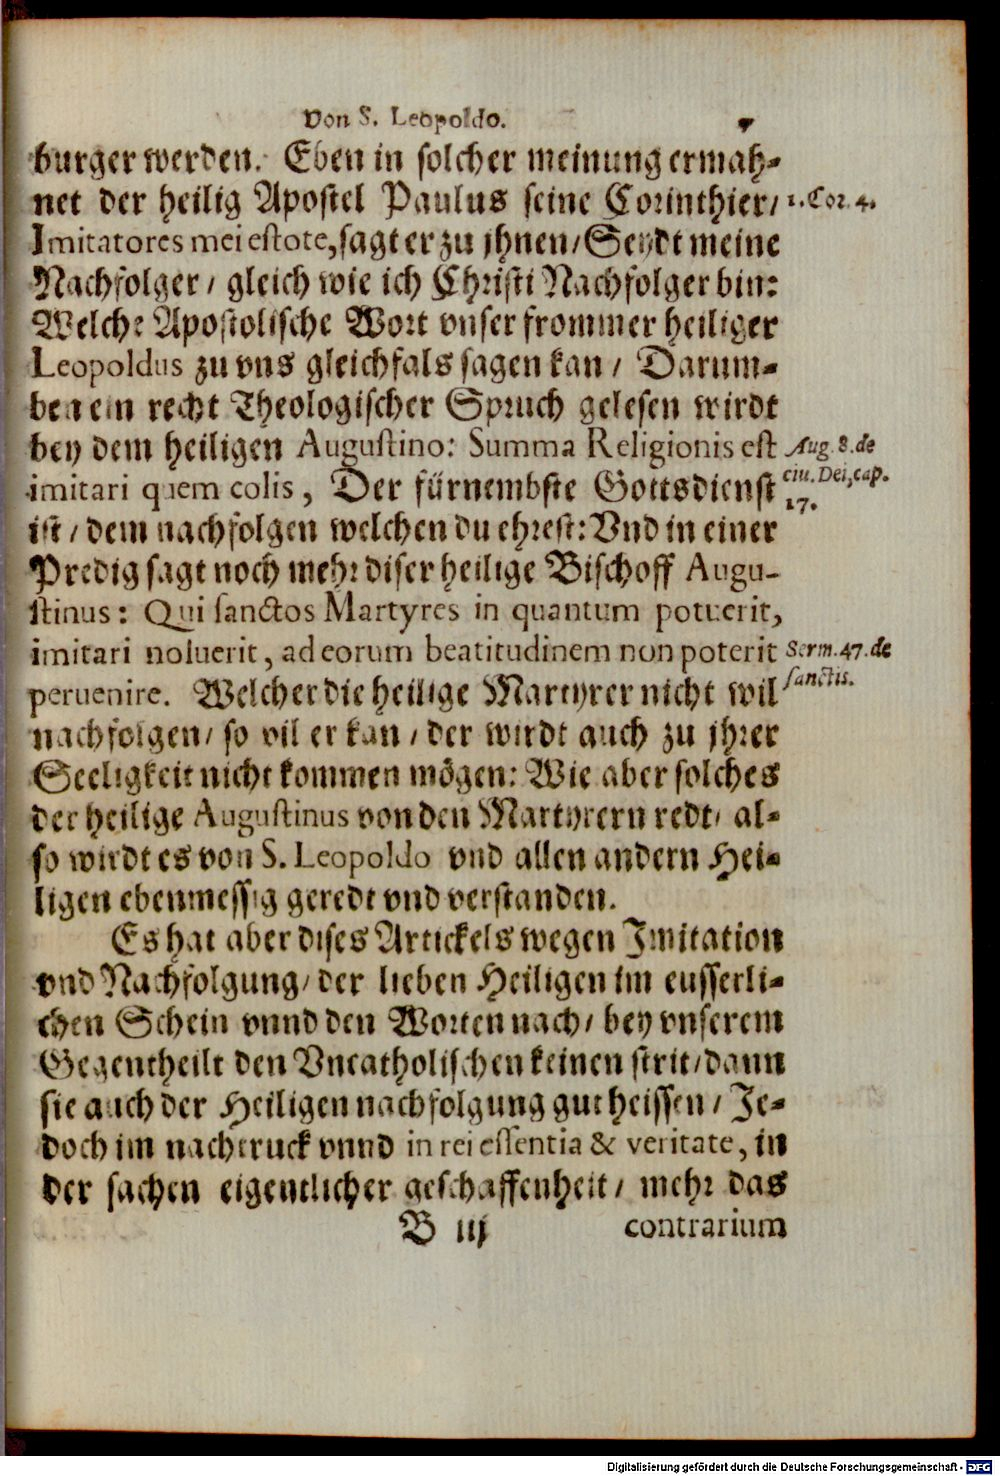 Von S. Leopoldo.
burger werden. Eben in solcher meinung ermah-
net der heilig Apostel Paulus seine Corinthier/
1. Cor. 4.
Imitatores mei estote, sagt er zu jhnen/ Seydt meine
Nachfolger/ gleich wie ich Christi Nachfolger bin:
Welche Apostolische Wort vnser frommer heiliger
Leopoldus zu vns gleichfals sagen kan/ Darum-
ben ein recht Theologischer Spruch gelesen wirdt
bey dem heiligen Augustino: Summa Religionis est
Aug. 8. de
imitari quem colis, Der fürnembste Gottsdienst
ciu. Dei, cap.
17.
ist/ dem nachfolgen welchen du ehrest: Vnd in einer
Predig sagt noch mehr diser heilige Bischoff Augu-
stinus: Qui sanctos Martyres in quantum potuerit,
imitari noluerit, ad eorum beatitudinem non poterit
Serm. 47. de
peruenire. Welcher die heilige Martyrer nicht wil
sanctis.
nachfolgen/ so vil er kan/ der wirdt auch zu jhrer
Seeligkeit nicht kommen mögen: Wie aber solches
der heilige Augustinus von den Martyrern redt/ al-
so wirdt es von S. Leopoldo vnd allen andern Hei-
ligen ebenmessig geredt vnd verstanden.
Es hat aber dises Artickels wegen Imitation
vnd Nachfolgung/ der lieben Heiligen im eusserli-
chen Schein vnnd den Worten nach/ bey vnserem
Gegentheilt den Vncatholischen keinen strit/ dann
sie auch der Heiligen nachfolgung gut heissen/ Je-
doch im nachtruck vnnd in rei essentia & veritate, in
der sachen eigentlicher geschaffenheit/ mehr das
B iij
contrarium
Digitalisierung gefördert durch die Deutsche Forschungsgemeinschaft - DFG